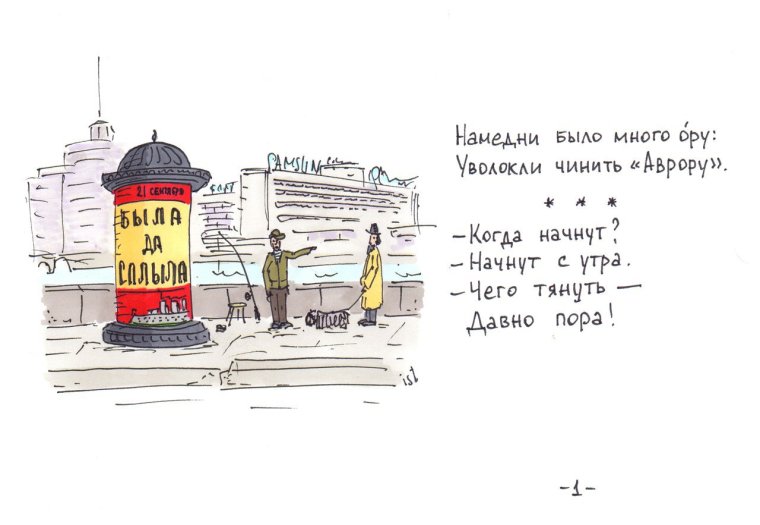 21 СЕНТЯБРЯ
БЫЛА
ДА
СПЛЫЛА
SAMSUN
Намедни было много óру:
Уволокли чинить «Аврору».
* * *
– Когда начнут?
– Начнут с утра.
– Чего тянуть —
Давно пора!
ist
-1-